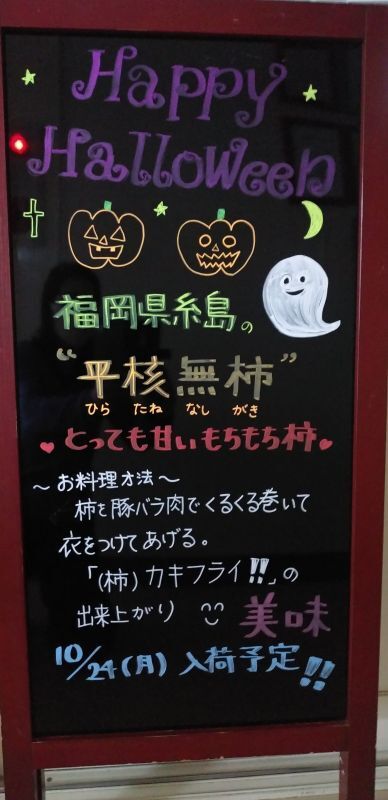 Happy
Halloween
福岡県糸島の
“平核無柿”
ひら たね なし がき
とっても甘いもちもち柿
～お料理方法～
柿を豚バラ肉でくるくる巻いて
衣をつけてあげる。
「(柿)カキフライ!!」の
出来上がり 美味
10/24(月)入荷予定!!